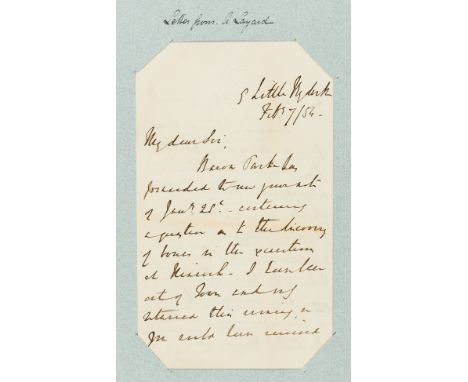 Letter from A Layard
9 Little Ryder St
Feb 7/54.
My dear Sir,
Baron Parke has
forwarded to me your note
of Jany 28th containing
a question as to the discovery
of bones in the excavations
at Nineveh. I have been
out of Town and only
returned this evening, or
you would have received